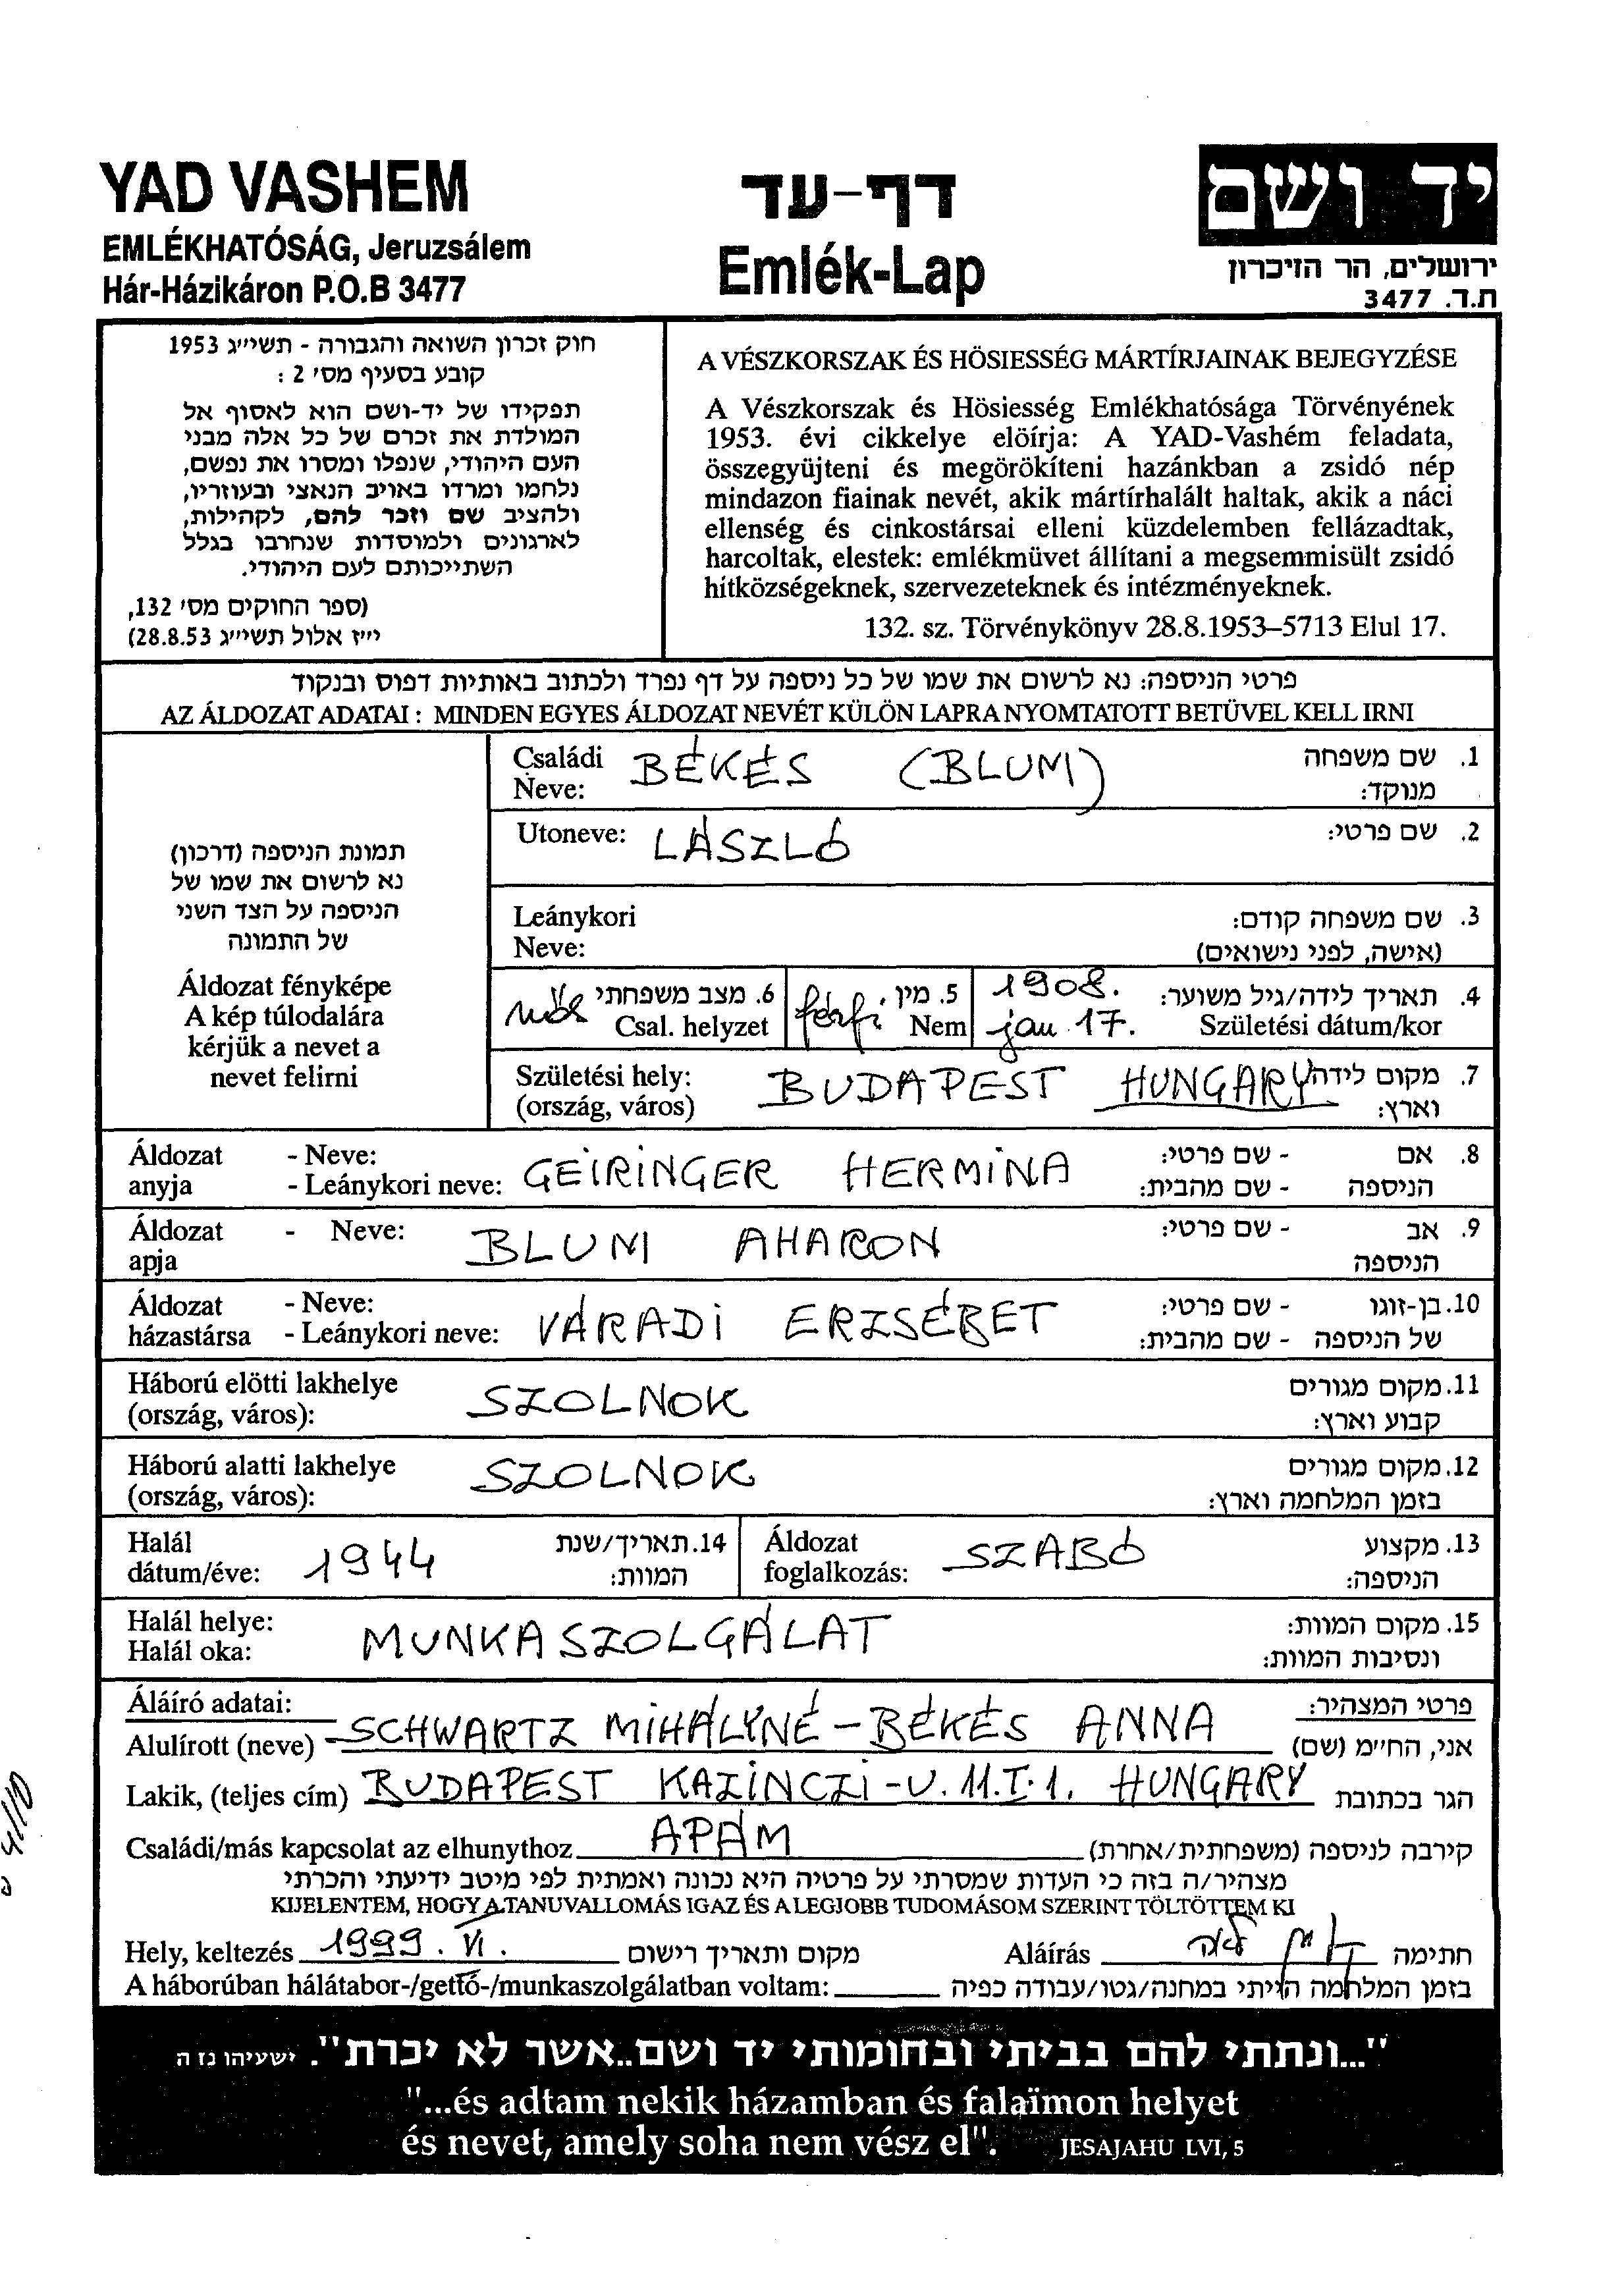 YAD VASHEM
EMLÉKHATÓSÁG, Jeruzsálem
Hár-Házikáron P.O.B 3477
דף-עד
Emlék-Lap
יד ושם
ירושלים, הר הזיכרון
ת.ד. 3477
חוק זכרון השואה והגבורה - תשי״ג 1953
קובע בסעיף מס׳ 2 :
תפקידו של יד-ושם הוא לאסוף אל
המולדת את זכרם של כל אלה מבני
העם היהודי, שנפלו ומסרו את נפשם,
נלחמו ומרדו באויב הנאצי ובעוזריו,
ולהציב שם וזכר להם, לקהילות,
לארגונים ולמוסדות שנחרבו בגלל
השתייכותם לעם היהודי.
(ספר החוקים מס׳ 132,
י״ז אלול תשי״ג 28.8.53)
A VÉSZKORSZAK ÉS HÖSIESSÉG MÁRTÍRJAINAK BEJEGYZÉSE
A Vészkorszak és Hösiesség Emlékhatósága Törvényének
1953. évi cikkelye elöírja: A YAD-Vashém feladata,
összegyüjteni és megörökíteni hazánkban a zsidó nép
mindazon fiainak nevét, akik mártírhalált haltak, akik a náci
ellenség és cinkostársai elleni küzdelemben fellázadtak,
harcoltak, elestek: emlékmüvet állítani a megsemmisült zsidó
hitközségeknek, szervezeteknek és intézményeknek.
132. sz. Törvénykönyv 28.8.1953–5713 Elul 17.
פרטי הניספה: נא לרשום את שמו של כל ניספה על דף נפרד ולכתוב באותיות דפוס ובנקוד
AZ ÁLDOZAT ADATAI : MINDEN EGYES ÁLDOZAT NEVÉT KÜLÖN LAPRA NYOMTATOTT BETÜVEL KELL IRNI
תמונת הניספה (דרכון)
נא לרשום את שמו של
הניספה על הצד השני
של התמונה
Áldozat fényképe
A kép túlodalára
kérjük a nevet a
nevet felirni
Családi BÉKÉS (BLUM) 1. שם משפחה
Neve: מנוקד:
Utoneve: LÁSZLÓ 2. שם פרטי:
Leánykori 3. שם משפחה קודם:
Neve: (אישה, לפני נישואים)
nős 6. מצב משפחתי férfi 5. מין 1908. 4. תאריך לידה/גיל משוער:
Csal. helyzet Nem jan 17. Születési dátum/kor
Születési hely: BUDAPEST HUNGARY 7. מקום לידה
(ország, város) וארץ:
Áldozat - Neve: GEIRINGER HERMINA - שם פרטי: 8. אם
anyja - Leánykori neve: - שם מהבית: הניספה
Áldozat - Neve: BLUM AHARON - שם פרטי: 9. אב
apja הניספה
Áldozat - Neve: VÁRADI ERZSÉBET - שם פרטי: 10. בן-זוגו
házastársa - Leánykori neve: - שם מהבית: של הניספה
Háború elötti lakhelye SZOLNOK 11. מקום מגורים
(ország, város): קבוע וארץ:
Háború alatti lakhelye SZOLNOK 12. מקום מגורים
(ország, város): בזמן המלחמה וארץ:
Halál 1944 14. תאריך/שנת Áldozat SZABÓ 13. מקצוע
dátum/éve: המוות: foglalkozás: הניספה:
Halál helye: MUNKASZOLGÁLAT 15. מקום המוות:
Halál oka: ונסיבות המוות:
Áláíró adatai: פרטי המצהיר:
Alulírott (neve) SCHWARTZ MIHÁLYNÉ - BÉKÉS ANNA אני, החי״מ (שם)
Lakik, (teljes cím) BUDAPEST KAZINCZI-U. 11. I. 1. HUNGARY הגר בכתובת
Családi/más kapcsolat az elhunythoz APÁM קירבה לניספה (משפחתית/אחרת)
מצהיר/ה בזה כי העדות שמסרתי על פרטיה היא נכונה ואמתית לפי מיטב ידיעתי והכרתי
KIJELENTEM, HOGY A TANUVALLOMÁS IGAZ ÉS A LEGJOBB TUDOMÁSOM SZERINT TÖLTÖTTEM KI
Hely, keltezés 1999. VI. מקום ותאריך רישום Aláírás חתימה
A háborúban hálátabor-/gettó-/munkaszolgálatban voltam: בזמן המלחמה הייתי במחנה/גטו/עבודה כפיה
"...ונתתי להם בביתי ובחומותי יד ושם..אשר לא יכרת". ישעיהו נז ה
"...és adtam nekik házamban és falaïmon helyet
és nevet, amely soha nem vész el". JESAJAHU LVI, 5